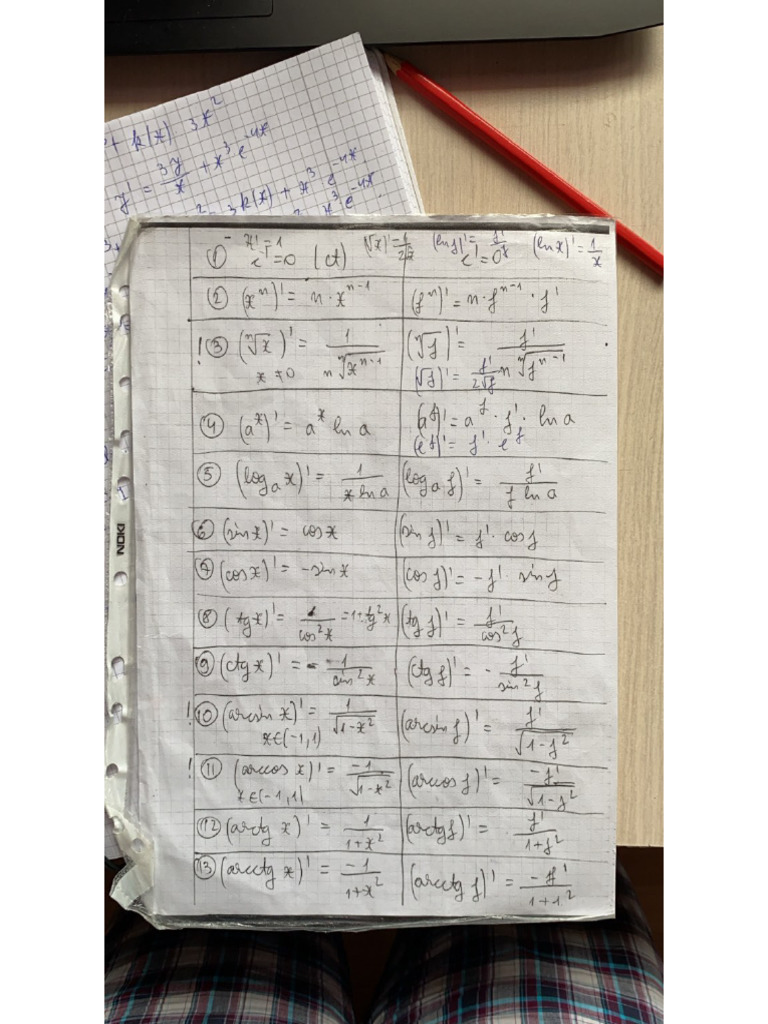 + k(x) 3x²
y' = 3y/x + x³ e^-4x
3k(x) + x³ e^-4x
x³ e^-4x
NOKI
① x' = 1 (√x)' = 1/2√x (ln f)' = f'/f (ln x)' = 1/x
c' = 0 (ct) c' = 0
② (xⁿ)' = n · x^(n-1) (fⁿ)' = n · f^(n-1) · f'
! ③ (ⁿ√x)' = 1/(n ⁿ√(x^(n-1))) (ⁿ√f)' = f'/(n ⁿ√(f^(n-1)))
x ≠ 0 (√f)' = f'/2√f
④ (a^x)' = a^x ln a (a^f)' = a^f · f' · ln a
(e^f)' = f' · e^f
⑤ (log_a x)' = 1/(x ln a) (log_a f)' = f'/(f ln a)
⑥ (sin x)' = cos x (sin f)' = f' · cos f
⑦ (cos x)' = -sin x (cos f)' = -f' · sin f
⑧ (tg x)' = 1/cos²x = 1+tg²x (tg f)' = f'/cos²f
⑨ (ctg x)' = - 1/sin²x (ctg f)' = - f'/sin²f
! ⑩ (arcsin x)' = 1/√(1-x²) (arcsin f)' = f'/√(1-f²)
x∈(-1,1)
! ⑪ (arccos x)' = -1/√(1-x²) (arccos f)' = -f'/√(1-f²)
x∈(-1,1)
⑫ (arctg x)' = 1/(1+x²) (arctg f)' = f'/(1+f²)
⑬ (arcctg x)' = -1/(1+x²) (arcctg f)' = -f'/(1+f²)